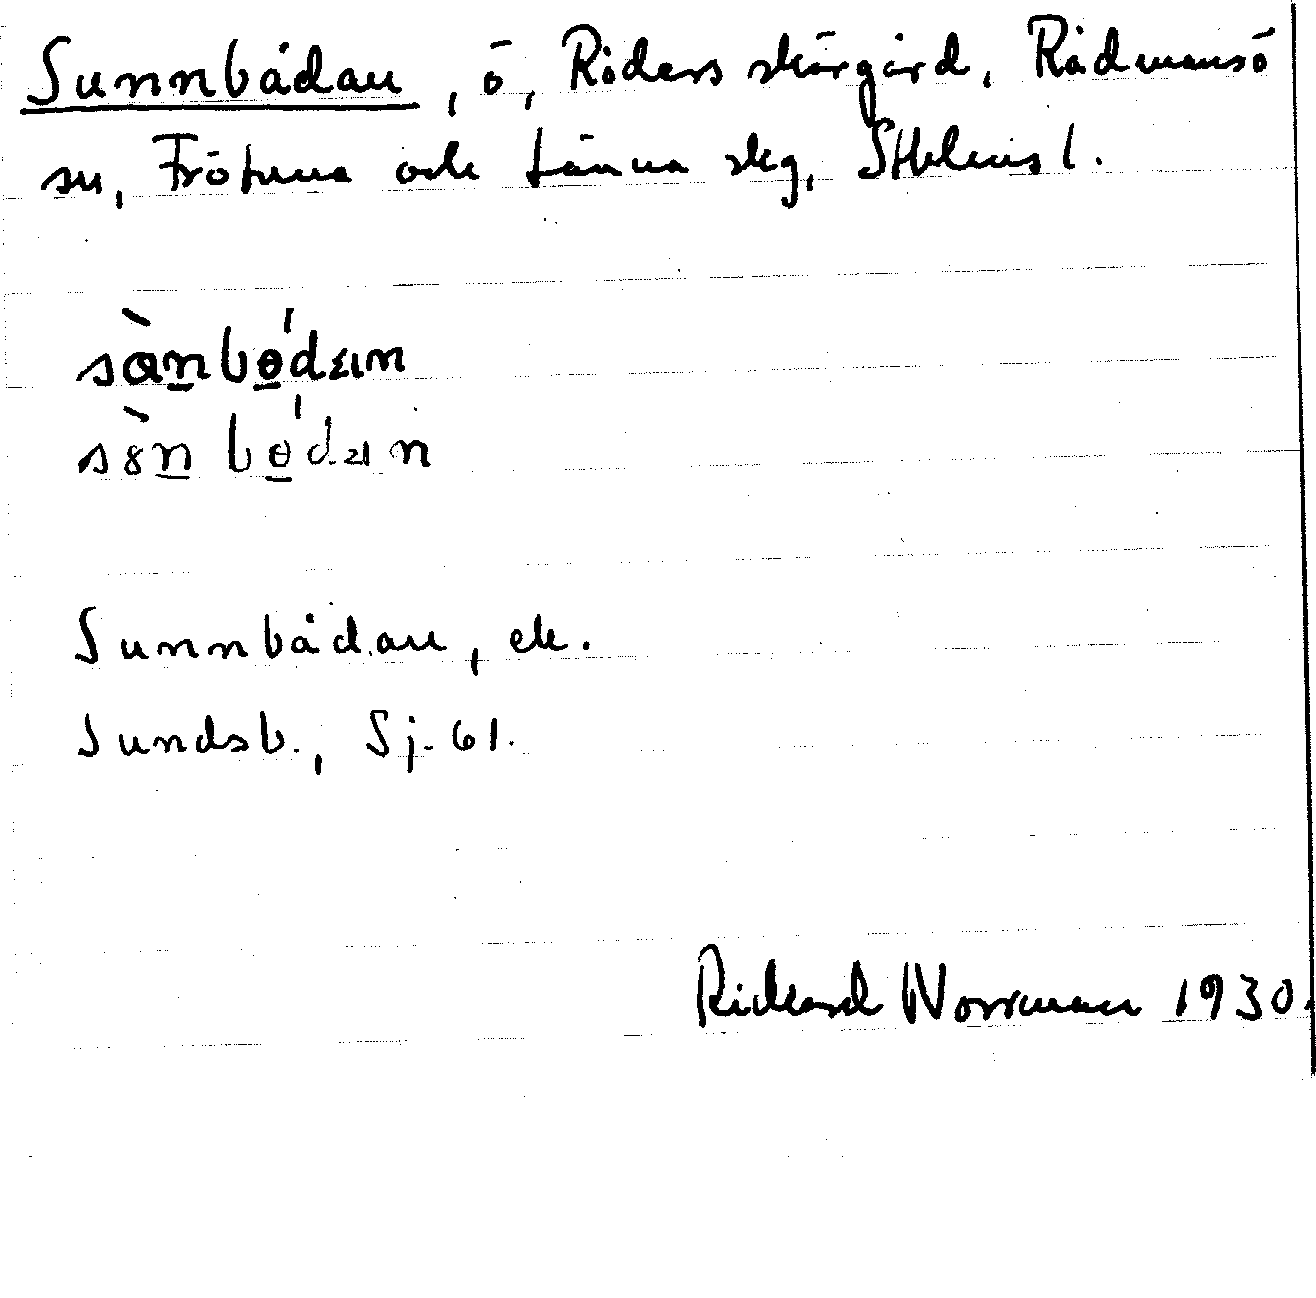 Sunnbådan, ö, Röders skärgård, Rådmansö
sn, Frötuna och Länna skg, Sthlms l.
sànbɵ́dan
sɵ̀nbɵ́dan
Sunnbådan, ek.
Sundsb., Sj. 61.
Rickard Norrman 1930.